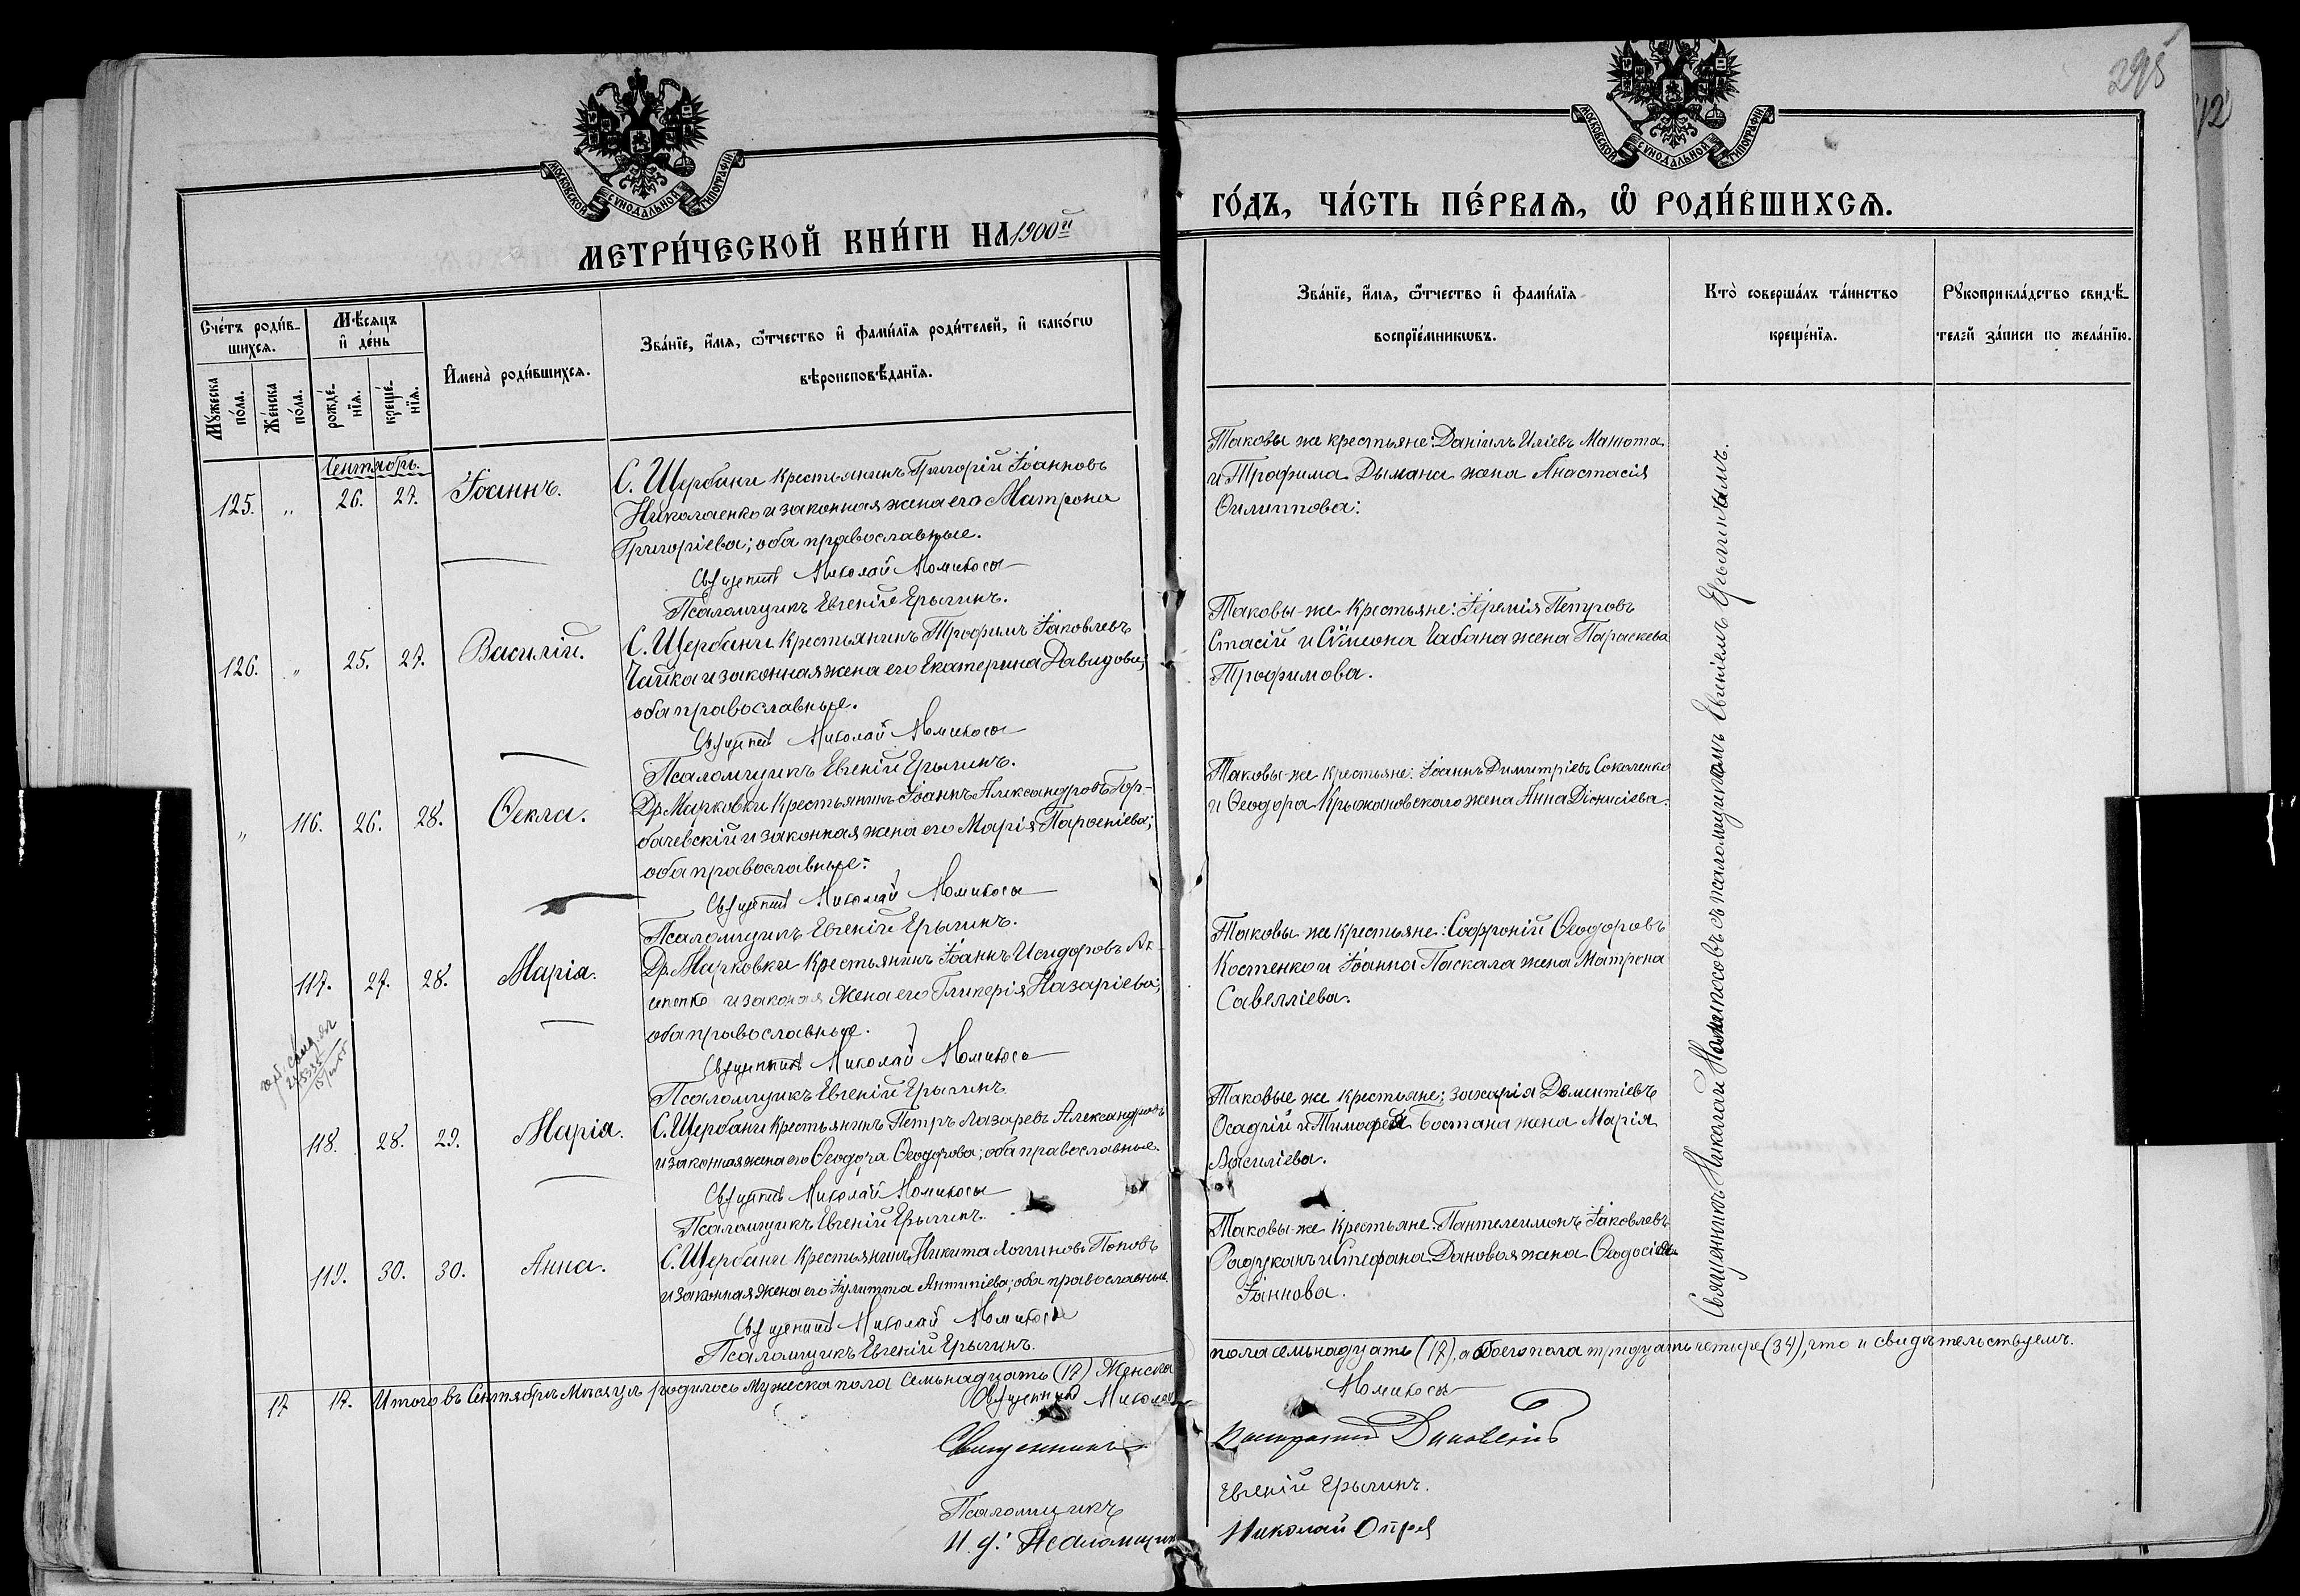 295
12
МОСКОВСКОЙ СѴНОДАЛЬНОЙ ТИПОГРАФІИ.
МОСКОВСКОЙ СѴНОДАЛЬНОЙ ТИПОГРАФІИ.
МЕТРИ́ЧЕСКОЙ КНИ́ГИ НА 1900й
ГО́ДЪ, ЧА́СТЬ ПЕ́РВАѦ, Ѡ҆ РОДИ́ВШИХСѦ.
Сче́тъ роди́в-
шихсѧ.
Мꙋ́жеска
по́ла.
Же́нска
по́ла.
Мѣ́сѧцъ
и҆ де́нь
рожде́-
нїѧ.
креще́-
нїѧ.
И҆мена̀ роди́вшихсѧ.
Зва́нїе, и҆́мѧ, ѻ҆́тчество и҆ фами́лїѧ роди́телей, и҆ како́гѡ
вѣроисповѣ́данїѧ.
Зва́нїе, и҆́мѧ, ѻ҆́тчество и҆ фами́лїѧ
воспрїе́мникѡвъ.
Кто̀ соверша́лъ та́инство
креще́нїѧ.
Рꙋкоприкла́дство свидѣ́-
телей за́писи по жела́нїю.
Сентябрь.
125. „ 26. 27. Іоаннъ.
С. Щербани крестьянинъ Григорій Іоанновъ
Николаенко и законная жена его Матрона
Григоріева; оба православные.
Священникъ Николай Номикосъ
Псаломщикъ Евгеній Ерыгинъ.
Таковы же крестьяне: Даніилъ Иліевъ Манюта
и Трофима Дымана жена Анастасія
Филиппова:
126. „ 25. 27. Василій.
С. Щербани крестьянинъ Трофимъ Іаковлевъ
Чайка и законная жена его Екатерина Давидова;
оба православные.
Священникъ Николай Номикосъ
Псаломщикъ Евгеній Ерыгинъ.
Таковы-же крестьяне: Іеремія Петровъ
Стасій и Сѵмеона Чабана жена Параскева
Трофимова.
„ 116. 26. 28. Ѳекла.
Др. Марковки крестьянинъ Іоаннъ Александровъ Гор-
бачевскій и законная жена его Марія Парѳеніева;
оба православные:
Священникъ Николай Номикосъ
Псаломщикъ Евгеній Ерыгинъ.
Таковы-же крестьяне: Іоаннъ Димитріевъ Соколенко
и Ѳеодора Крыжановскаго жена Анна Діонисіева.
117. 27. 28. Марія.
Др. Марковки крестьянинъ Іоаннъ Исидоровъ
и законая жена его Гликерія Назаріева;
оба православные.
Священникъ Николай Номикосъ
Псаломщикъ Евгеній Ерыгинъ
Таковы же крестьяне: Софроній Ѳеодоровъ
Костенко и Іоанна Паскала жена Матрона
Савелліева.
118. 28. 29. Марія.
С. Щербани крестьянинъ Петръ Лазаревъ Александровъ
и законная жена его Ѳеодора Ѳеодорова; оба православные.
Священникъ Николай Номикосъ
Псаломщикъ Евгеній Ерыгинъ.
Таковые же крестьяне: Захарія Дементіевъ
Осадчій и Тимофея Бостана жена Марія
Василіева.
119. 30. 30. Анна.
С. Щербани крестьянинъ Никита Логгиновъ Поповъ
и законная жена его Іулитта Антипіева; оба православные.
Священникъ Николай Номикосъ
Псаломщикъ Евгеній Ерыгинъ.
Таковы-же крестьяне: Пантелеимонъ Іаковлевъ
Радуканъ и Стефана Дановая жена Ѳеодосія
Іоаннова.
Священникъ Николай Номикосовъ съ псаломщикомъ Евгеніемъ Ерыгинымъ.
17 17. Итого въ Сентябрѣ Мѣсяцѣ родилось Мужеска пола Семьнадцать (17) Женска
пола семьнадцать (17), а обоего пола тридцать четыре (34), что и свидѣтельствуемъ.
Священникъ Николай Номикосъ
Священникъ
Псаломщикъ Евгеній Ерыгинъ.
И. д. Псаломщика Николай